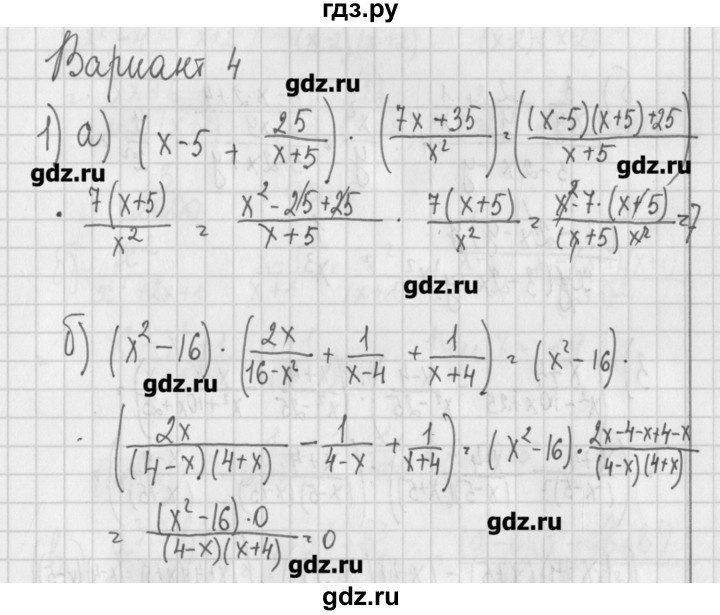 гдз.ру
Вариант 4
gdz.ru
1) а) (x-5 + 25/(x+5)) · ((7x+35)/x²) = (((x-5)(x+5)+25)/(x+5)) ·
gdz.ru gdz.ru
· 7(x+5)/x² = (x²-25+25)/(x+5) · 7(x+5)/x² = (x²·7·(x+5))/((x+5) x²) = 7
gdz.ru
б) (x²-16) · (2x/(16-x²) + 1/(x-4) + 1/(x+4)) = (x²-16) ·
gdz.ru
· (2x/((4-x)(4+x)) - 1/(4-x) + 1/(x+4)) = (x²-16) · (2x-4-x+4-x)/((4-x)(4+x))
= ((x²-16)·0)/((4-x)(x+4)) = 0
gdz.ru
gdz.ru
gdz.ru